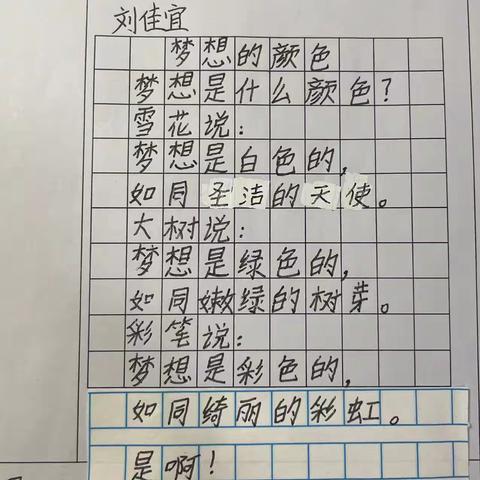 刘佳宜
梦想的颜色
梦想是什么颜色？
雪花说：
梦想是白色的，
如同圣洁的天使。
大树说：
梦想是绿色的，
如同嫩绿的树芽。
彩笔说：
梦想是彩色的，
如同绮丽的彩虹。
是啊！